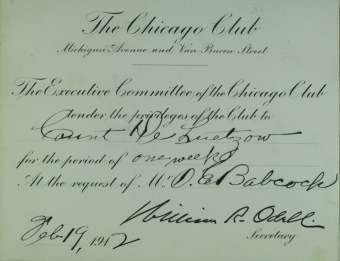 The Chicago Club
Michigan Avenue and Van Buren Street
The Executive Committee of the Chicago Club
tender the privileges of the Club to
Count De Luetzow
for the period of one week
At the request of Mr. O. E. Babcock
William R. Odell.
Feb 19, 1912
Secretary